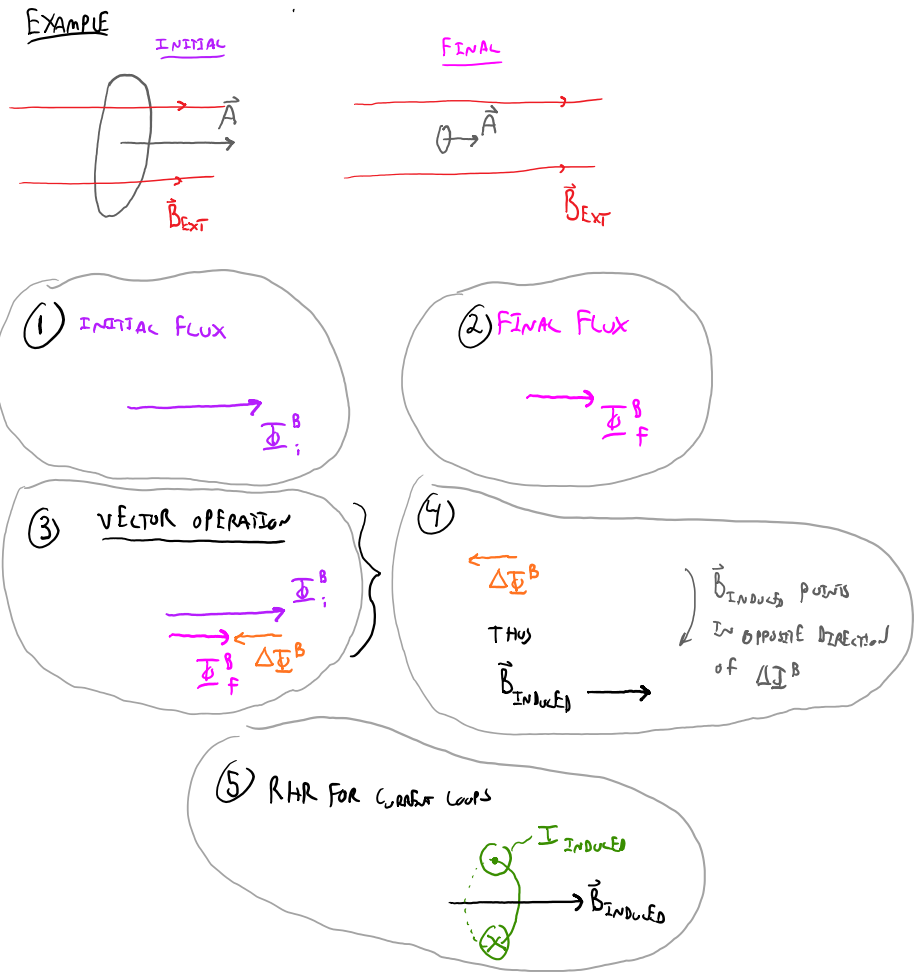 EXAMPLE
INITIAL
FINAL
A⃗
A⃗
B⃗EXT
B⃗EXT
① INITIAL FLUX
Φᴮi
② FINAL FLUX
Φᴮf
③ VECTOR OPERATION
Φᴮi
Φᴮf ΔΦᴮ
④
ΔΦᴮ
THUS
B⃗INDUCED
B⃗INDUCED POINTS
IN OPPOSITE DIRECTION
OF ΔΦᴮ
⑤ RHR FOR CURRENT LOOPS
I INDUCED
B⃗INDUCED